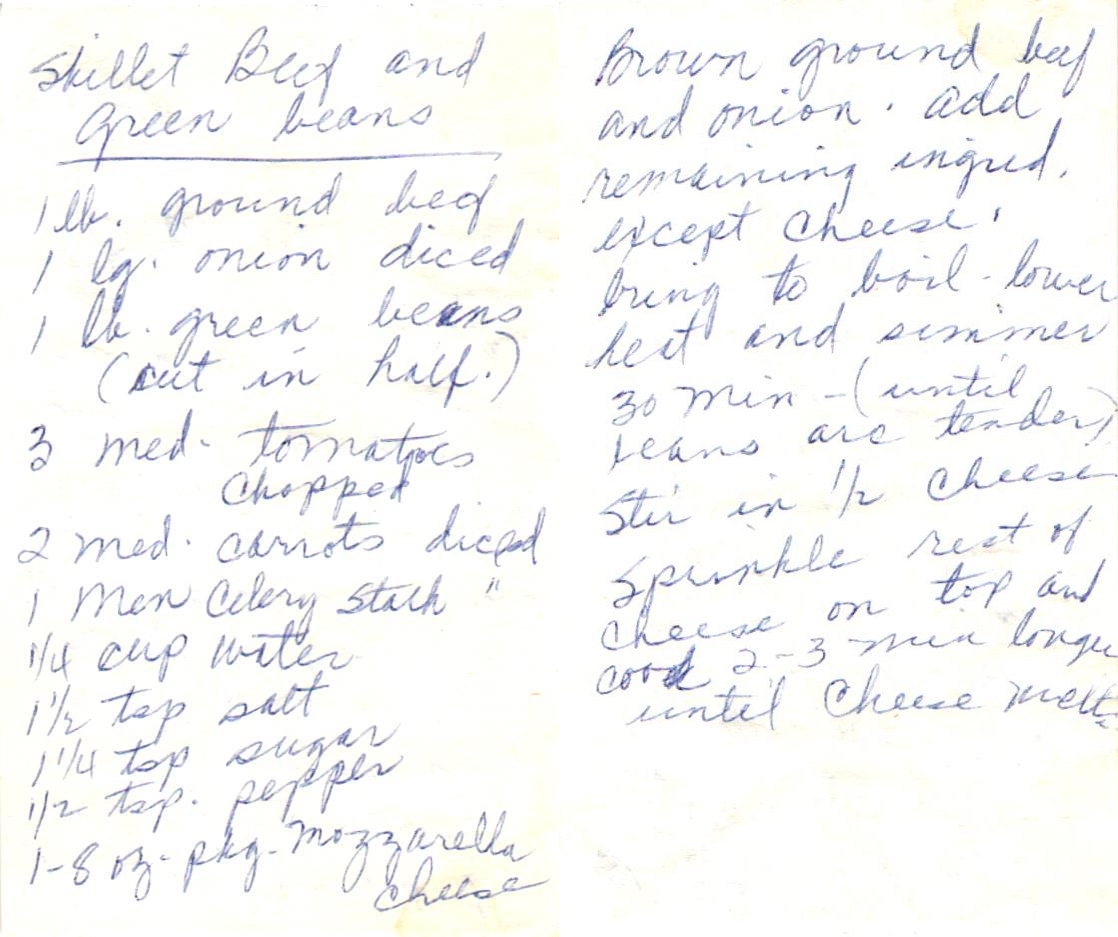 Skillet Beef and
Green beans
1 lb. ground beef
1 lg. onion diced
1 lb. green beans
(cut in half.)
3 med. tomatoes
chopped
2 med. carrots diced
1 Celery Stalk "
1/4 cup water
1 1/2 tsp salt
1 1/4 tsp sugar
1/2 tsp. pepper
1-8 oz. pkg. Mozzarella
cheese
Brown ground beef
and onion. add
remaining ingred.
except cheese.
bring to boil - lower
heat and simmer
30 min - (until
beans are tender)
Stir in 1/2 cheese
Sprinkle rest of
cheese on top and
cook 2-3 min longer
until cheese melts